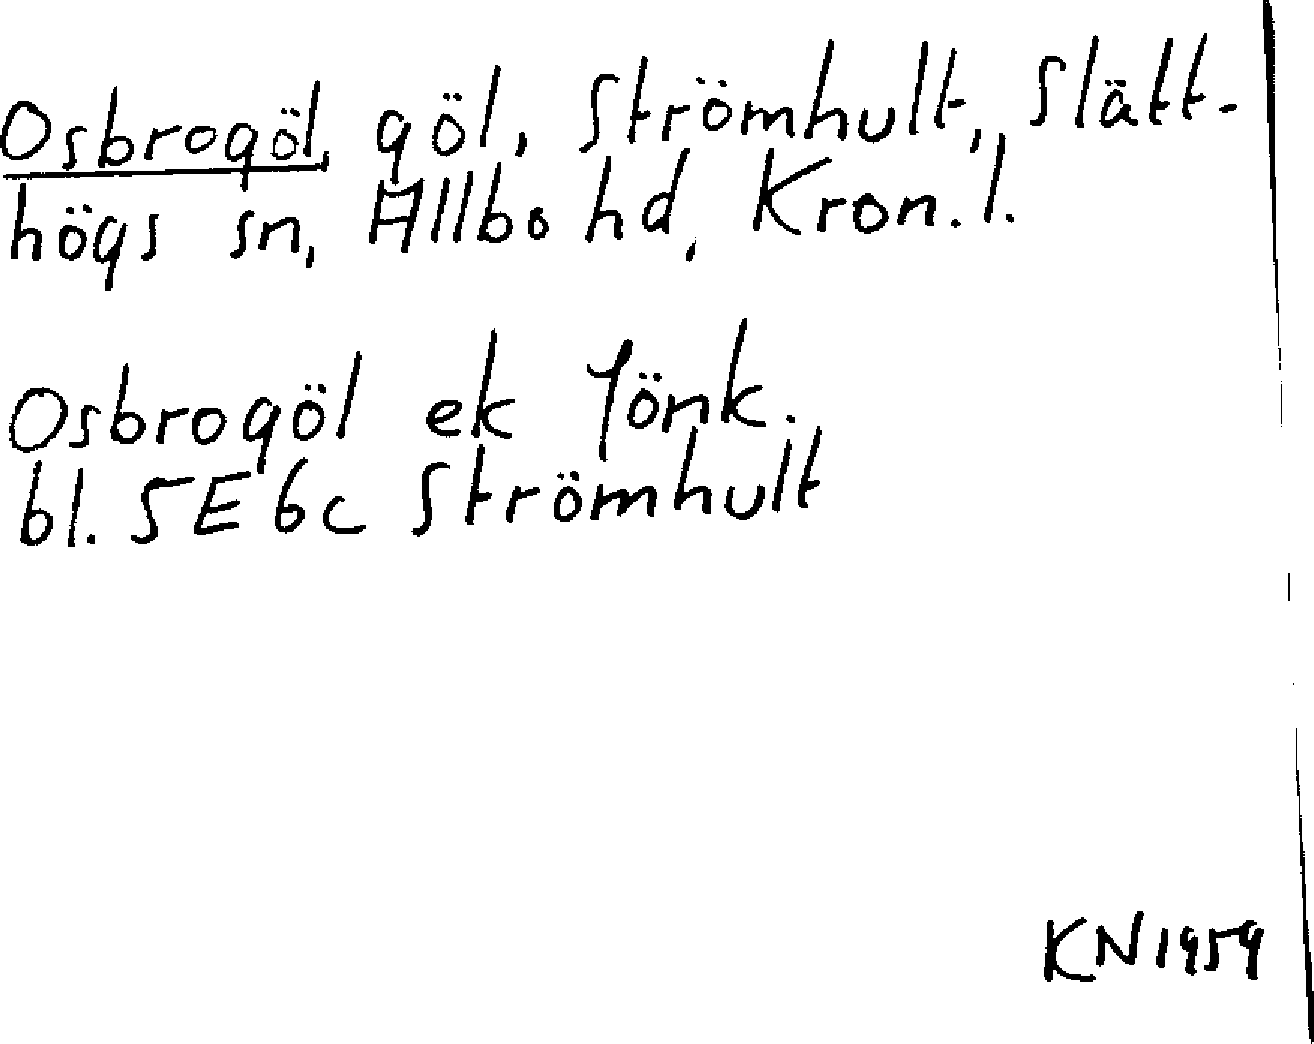 Osbrogöl, göl, Strömhult, Slätt-
högs sn, Allbo hd, Kron. l.
Osbrogöl ek Jönk.
bl. 5E 6c Strömhult
KN 1959